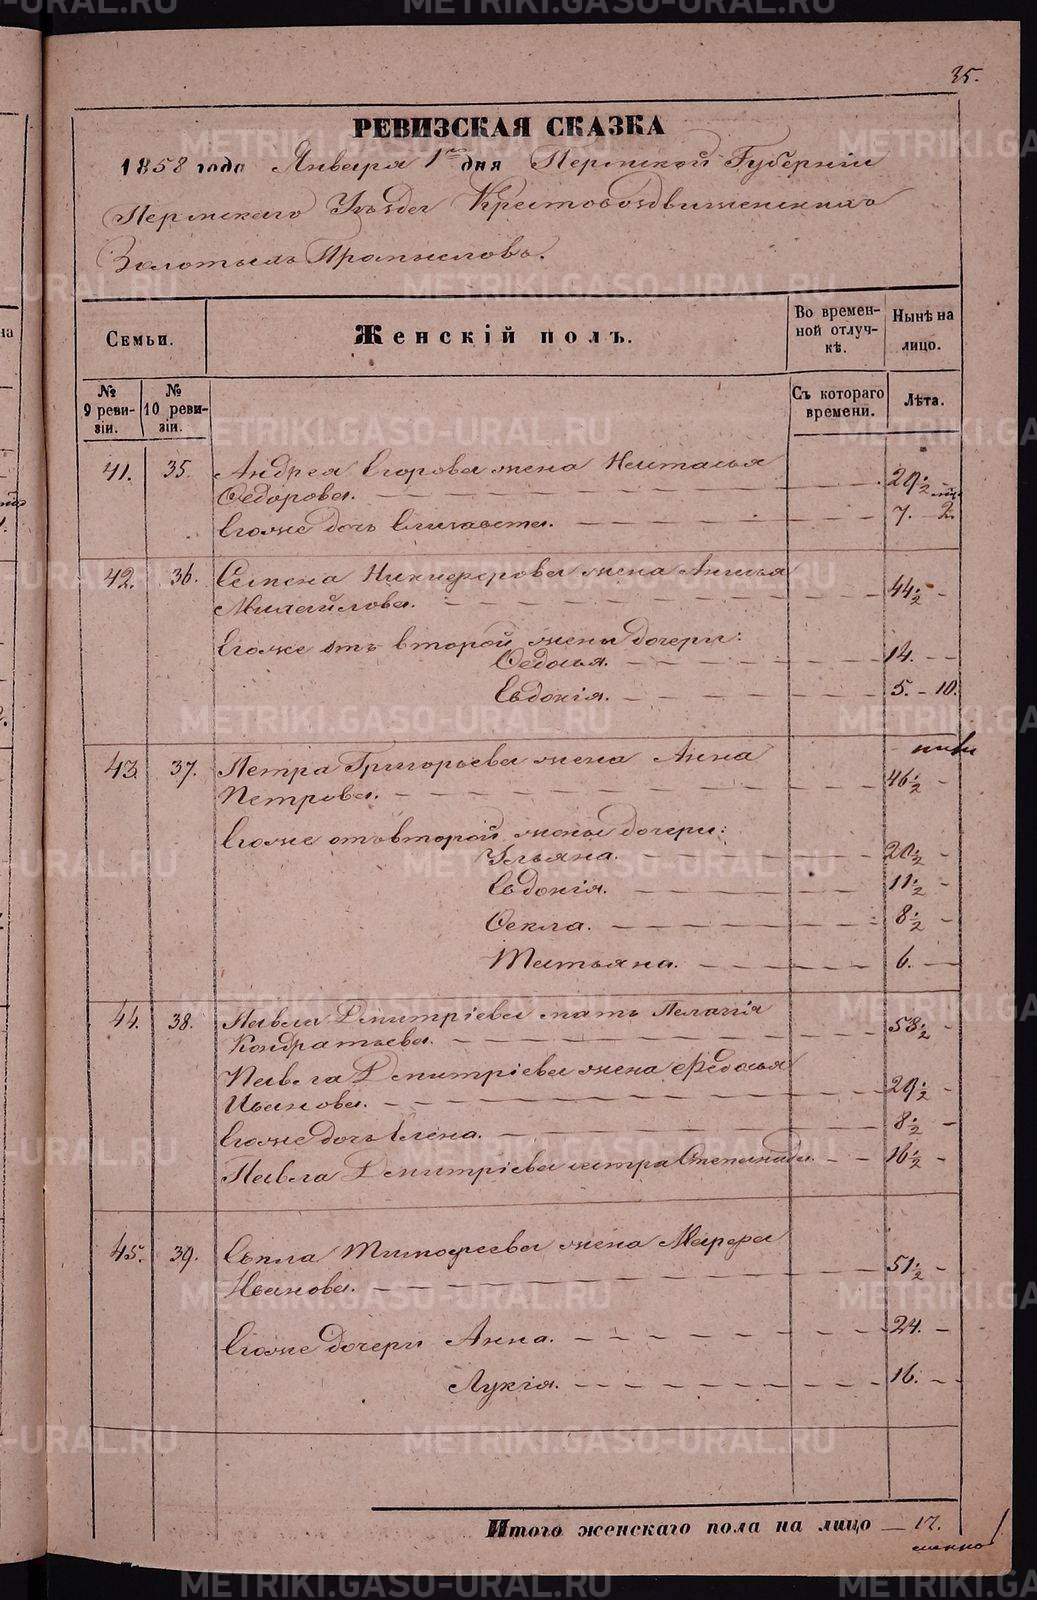 METRIKI.GASO-URAL.RU
35.
РЕВИЗСКАЯ СКАЗКА
1858 года Января 1го дня Пермской Губерніи
Пермскаго Уѣзда Крестовоздвиженскихъ
Золотыхъ Промысловъ.
Семьи.
Женскій полъ.
Во времен-
ной отлуч-
кѣ.
Нынѣ на
лицо.
№
9 реви-
зіи.
№
10 реви-
зіи.
Съ котораго
времени.
Лѣта.
41. 35. Андрея Егорова жена Наталья
Ѳедорова. 29½
Егоже дочь Елизавета. 7. 2.
42. 36. Семена Никифорова жена Анисья
Михайлова. 44½
Егоже отъ второй жены дочери:
Ѳедосья. 14.
Евдокія. 5. 10.
43. 37. Петра Григорьева жена Анна
Петрова. 46½
Егоже отъ второй жены дочери:
Ульяна. 20½
Евдокія. 11½
Ѳекла. 8½
Татьяна. 6.
44. 38. Павла Дмитріева мать Пелагія
Кондратьева. 58½
Павла Дмитріева жена Федосья
Иванова. 29½
Егоже дочь Елена. 8½
Павла Дмитріева сестра Степанида. 16½
45. 39. Сыпла Тимофеева жена Марфа
Иванова. 51½
Егоже дочери Анна. 24.
Лукія. 16.
Итого женскаго пола на лицо 17.